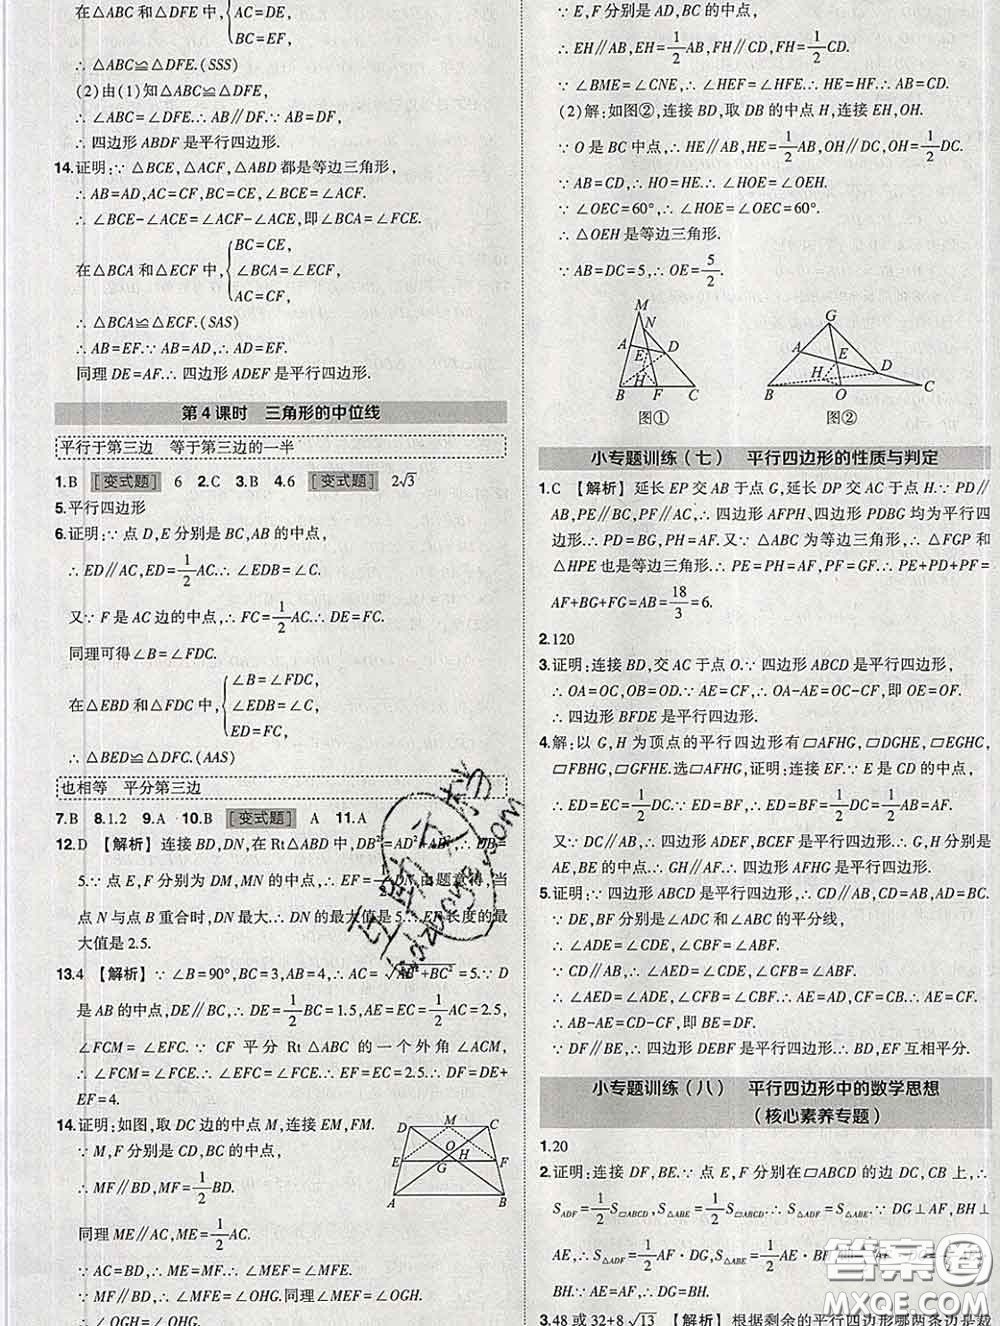 在△ABC 和△DFE 中,{AC=DE,
BC=EF,
∴ △ABC≌△DFE.(SSS)
(2)由(1)知△ABC≌△DFE,
∴ ∠ABC=∠DFE.∴ AB∥DF.∵ AB=DF,
∴ 四边形 ABDF 是平行四边形.
14.证明:∵ △BCE,△ACF,△ABD 都是等边三角形,
∴ AB=AD,AC=CF,BC=CE,∠BCE=∠ACF.
∴ ∠BCE-∠ACE=∠ACF-∠ACE,即∠BCA=∠FCE.
在△BCA 和△ECF 中,{BC=CE,
∠BCA=∠ECF,
AC=CF,
∴ △BCA≌△ECF.(SAS)
∴ AB=EF.∵ AB=AD,∴ AD=EF.
同理 DE=AF.∴ 四边形 ADEF 是平行四边形.
第 4 课时 三角形的中位线
平行于第三边 等于第三边的一半
1.B [变式题] 6 2.C 3.B 4.6 [变式题] 2√3
5.平行四边形
6.证明:∵ 点 D,E 分别是 BC,AB 的中点,
∴ ED∥AC,ED=1/2AC.∴ ∠EDB=∠C.
又∵ F 是 AC 边的中点,∴ FC=1/2AC.∴ DE=FC.
同理可得∠B=∠FDC.
在△EBD 和△FDC 中,{∠B=∠FDC,
∠EDB=∠C,
ED=FC,
∴ △BED≌△DFC.(AAS)
也相等 平分第三边
7.B 8.1.2 9.A 10.B [变式题] A 11.A
12.D 【解析】连接 BD,DN,在 Rt△ABD 中,DB²=AD²+AB²,∴ DB=
5.∵ 点 E,F 分别为 DM,MN 的中点,∴ EF=1/2DN,由题意得,当
点 N 与点 B 重合时,DN 最大.∴ DN 的最大值是 5.∴ EF 长度的最
大值是 2.5.
13.4 【解析】∵ ∠B=90°,BC=3,AB=4,∴ AC=√(AB²+BC²)=5.∵ D
是 AB 的中点,DE∥BC,∴ DE=1/2BC=1.5,AE=EC=1/2AC=2.5,
∠FCM=∠EFC.∵ CF 平分 Rt△ABC 的一个外角∠ACM,
∴ ∠FCA=∠FCM.∴ ∠EFC=∠FCE.∴ CE=EF.∴ DF=DE+
EF=4.
14.证明:如图,取 DC 边的中点 M,连接 EM,FM.
∵ M,F 分别是 CD,BC 的中点,
∴ MF∥BD,MF=1/2BD.
同理 ME∥AC,ME=1/2AC.
∵ AC=BD,∴ ME=MF.∴ ∠MEF=∠MFE.
∵ MF∥BD,∴ ∠MFE=∠OHG.同理∠MEF=∠OGH.
∴ ∠OGH=∠OHG.∴ OG=OH.
D M C
O
E G H F
A B
∵ E,F 分别是 AD,BC 的中点,
∴ EH∥AB,EH=1/2AB,FH∥CD,FH=1/2CD.
∵ ∠BME=∠CNE,∴ ∠HEF=∠HFE.∴ HE=HF.∴ AB=CD.
(2)解:如图②,连接 BD,取 DB 的中点 H,连接 EH,OH.
∵ O 是 BC 中点,∴ HE∥AB,HE=1/2AB,OH∥DC,OH=1/2DC.
∵ AB=CD,∴ HO=HE.∴ ∠HOE=∠OEH.
∵ ∠OEC=60°,∴ ∠HOE=∠OEC=60°.
∴ △OEH 是等边三角形.
∵ AB=DC=5,∴ OE=5/2.
M
N
A
E D
H
B F C
图①
G
A
E
H D
B O C
图②
小专题训练（七） 平行四边形的性质与判定
1.C 【解析】延长 EP 交 AB 于点 G,延长 DP 交 AC 于点 H.∵ PD∥
AB,PE∥BC,PF∥AC,∴ 四边形 AFPH、四边形 PDBG 均为平行四
边形.∴ PD=BG,PH=AF.又∵ △ABC 为等边三角形,∴ △FGP 和
△HPE 也是等边三角形.∴ PE=PH=AF,PF=GF.∴ PE+PD+PF=
AF+BG+FG=AB=18/3=6.
2.120
3.证明:连接 BD,交 AC 于点 O.∵ 四边形 ABCD 是平行四边形,
∴ OA=OC,OB=OD.∵ AE=CF,∴ OA-AE=OC-CF,即 OE=OF.
∴ 四边形 BFDE 是平行四边形.
4.解:以 G,H 为顶点的平行四边形有▱AFHG,▱DGHE,▱EGHC,
▱FBHG,▱GFHE.选▱AFHG,证明:连接 EF.∵ E 是 CD 的中点,
∴ ED=EC=1/2CD.∵ F 是 AB 的中点,∴ AF=1/2AB.∴ DE=AF.
又∵ DC∥AB,∴ 四边形 ADEF,BCEF 是平行四边形.∵ G,H 分别是
AE,BE 的中点.∴ GH∥AF.∴ 四边形 AFHG 是平行四边形.
5.证明:∵ 四边形 ABCD 是平行四边形,∴ CD∥AB,CD=AB,AD=BC.
∵ DE,BF 分别是∠ADC 和∠ABC 的平分线,
∴ ∠ADE=∠CDE,∠CBF=∠ABF.
∵ CD∥AB,∴ ∠AED=∠CDE,∠CFB=∠ABF.
∴ ∠AED=∠ADE,∠CFB=∠CBF.∴ AE=AD,CF=CB.∴ AE=CF.
∴ AB-AE=CD-CF,即 BE=DF.
∵ DF∥BE,∴ 四边形 DEBF 是平行四边形.∴ BD,EF 互相平分.
小专题训练（八） 平行四边形中的数学思想
（核心素养专题）
1.20
2.证明:连接 DF,BE.∵ 点 E,F 分别在▱ABCD 的边 DC,CB 上,∴
S△ADF=1/2S▱ABCD,S△ABE=1/2S▱ABCD.∴ S△ADF=S△ABE.∵ DG⊥AF,BH⊥
AE,∴ S△ADF=1/2AF·DG,S△ABE=1/2AE·BH.
BH.∵ AF=AE,∴ DG=BH.
3.48 或 32+8√13 【解析】根据剩余的平行四边形哪两条边是裁
答案卷
MXQE.COM